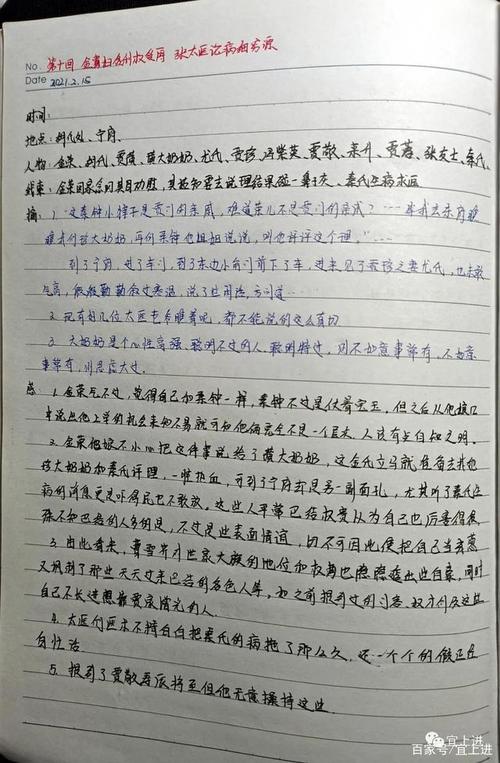 No. 第十回 金寡妇贪利权受辱 张太医论病细穷源
Date 2021.2.15
时间:
地点: 胡氏处、宁府
人物: 金荣、胡氏、贾璜、璜大奶奶、尤氏、贾珍、冯紫英、贾敬、来升、贾蓉、张友士、秦氏
线索: 金荣回家后向其母功慰,其姑知要去说理结果碰一鼻子灰、秦氏生病求医
摘: 1. “这秦钟小子是贾门的亲戚,难道荣儿不是贾门的亲戚?……等我去东府瞧
瞧我们珍大奶奶,再向秦钟他姐姐说说,叫他评评这个理。”……
到了宁府,进了车门,到了东边小角门前下了车,进来见了贾珍之妻尤氏,也未敢
气高,殷殷勤勤叙过寒温,说了些闲话,方问道…
2. 现有好几位太医老爷瞧着呢,都不能说的这么真切
3. 大奶奶是个心性高强聪明不过的人,聪明特过,则不如意事常有,不如意
事常有,则思虑太过。
感 1. 金荣气不过,觉得自己和秦钟一样,秦钟不过是仗着宝玉,但之后从他娘口
中说出他上学的机会来的不易就可知他俩完全不是一个层次,人该有点自知之明。
2. 金荣他娘不小心把这件事说给了璜大奶奶,这金氏立马就准备去找他
珍大奶奶和秦氏评理,一唯热血,可到了宁府却是另一副面孔,尤其听了秦氏生
病的消息更是吓得屁也不敢放。这些人平常巴结权贵以为自己也厉害得很,
殊不知巴结的人多的是,不过是些表面情谊,切不可因此便把自己当亲戚
3. 由此看来,曹雪芹对世家大族的地位和权势也隐隐透出些自豪,同时
又讽刺了那些天天过来巴结的各色人等,和之前提到过的刘家、奴才们及这些
自己不长进想靠贾家情光的人。
4. 太医们医术不精白白把秦氏的病拖了那么久,还一个个的假正经
自忙活
5. 提到了贾敬寿辰将至但他无意操持这些。
宜上进
百家号/宜上进